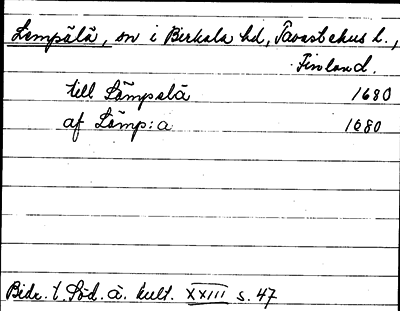 Lempälä, sn i Birkala hd, Tavastehus l.,
Finland.
till Lämpälä 1680
af Lämp:a 1680
Bidr. t. Söd. ä. kult. XXIII s. 47